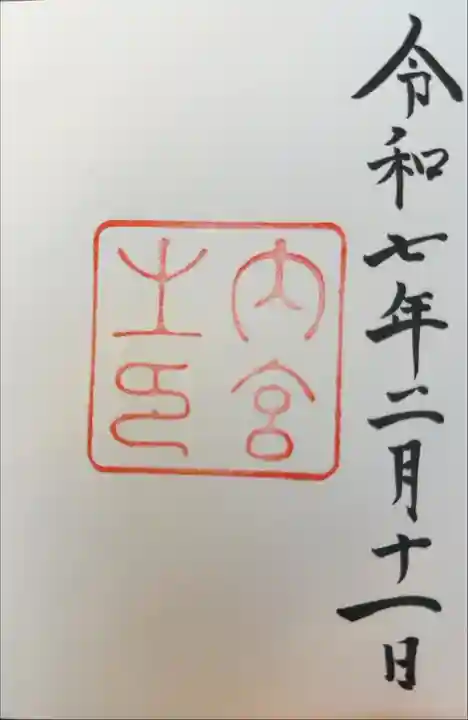 令和七年二月十一日
内宮
之印